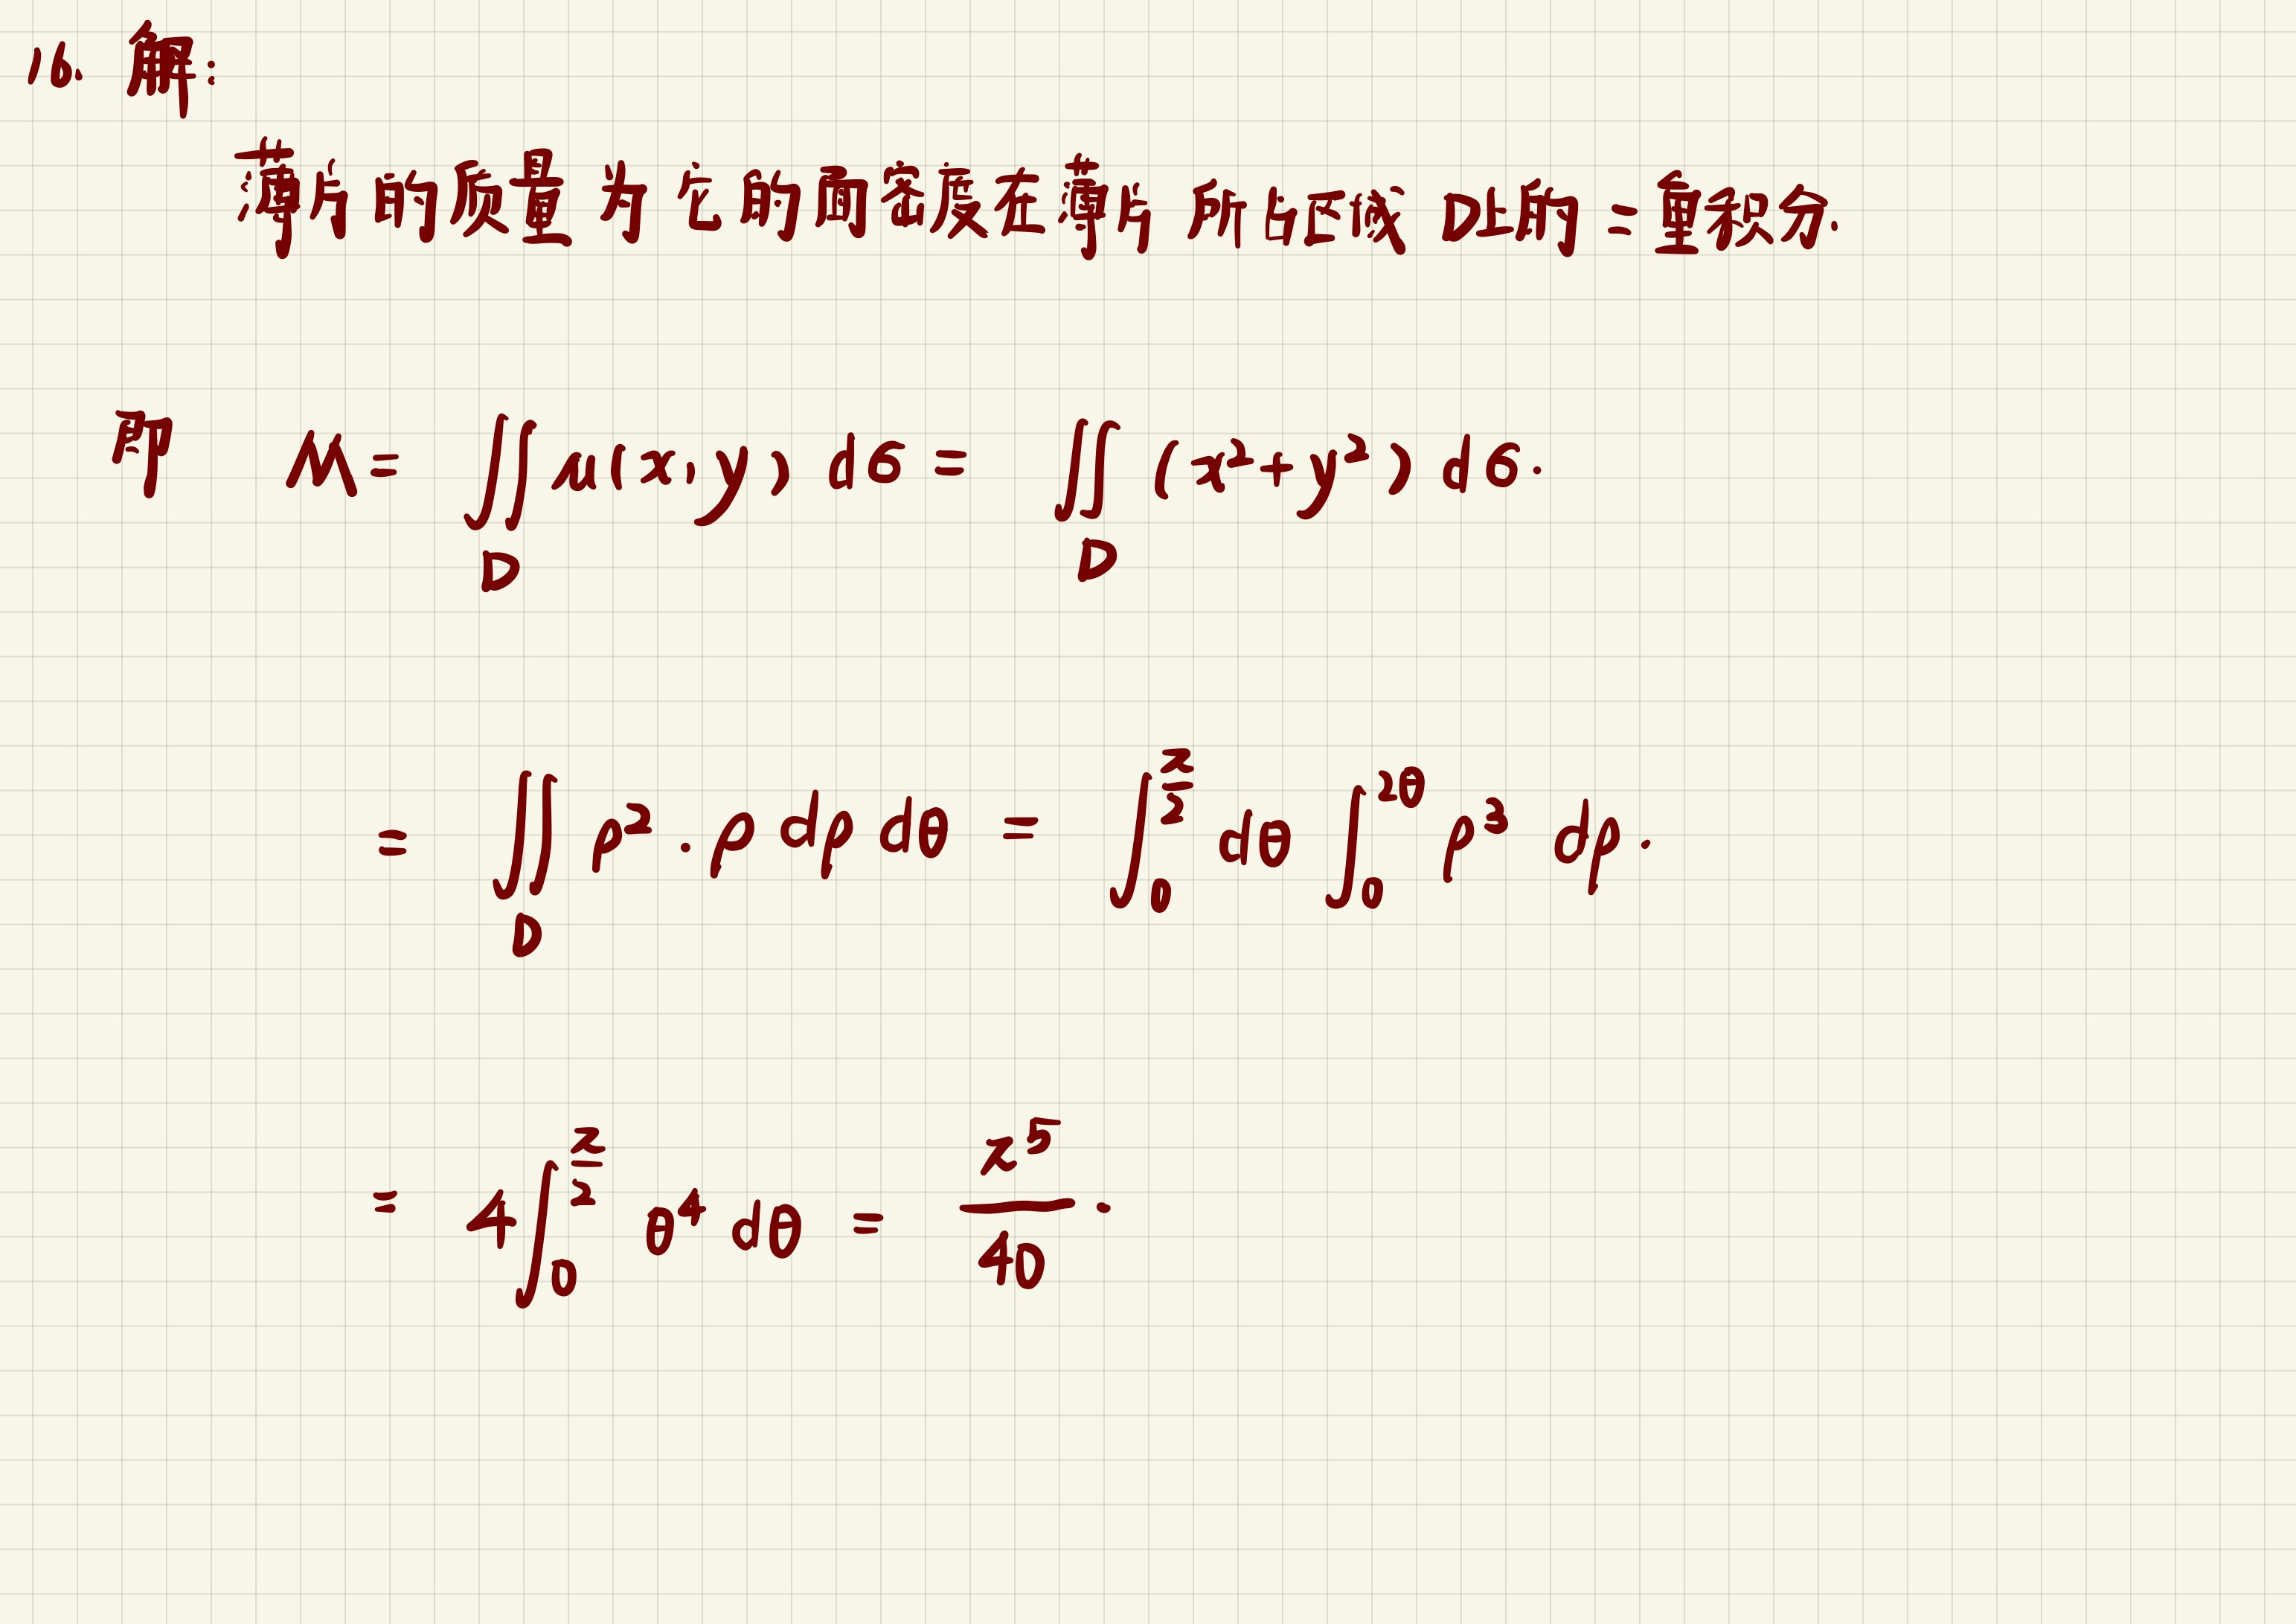 16. 解:
薄片的质量为它的面密度在薄片所占区域 D上的二重积分.
即 M = ∬_D μ(x,y) dσ = ∬_D (x²+y²) dσ.
= ∬_D ρ²·ρ dρ dθ = ∫_0^{π/2} dθ ∫_0^{2θ} ρ³ dρ.
= 4∫_0^{π/2} θ⁴ dθ = π⁵/40.